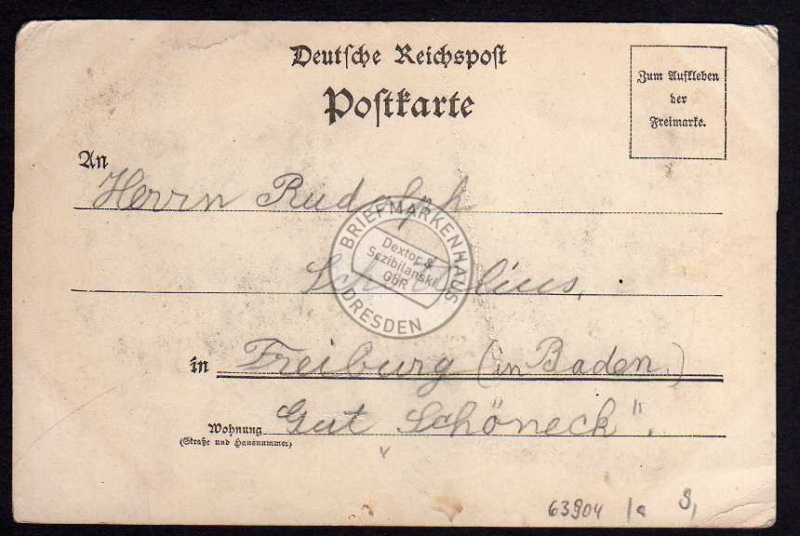 Deutsche Reichspost
Postkarte
Zum Aufkleben
der
Freimarke.
An
Herrn Rudolph
in Freiburg (in Baden.)
Wohnung „Gut Schöneck".
(Straße und Hausnummer)
BRIEFMARKENHAUS
Dextor &
Sczibilanski
GbR
DRESDEN
63904 1a 9,